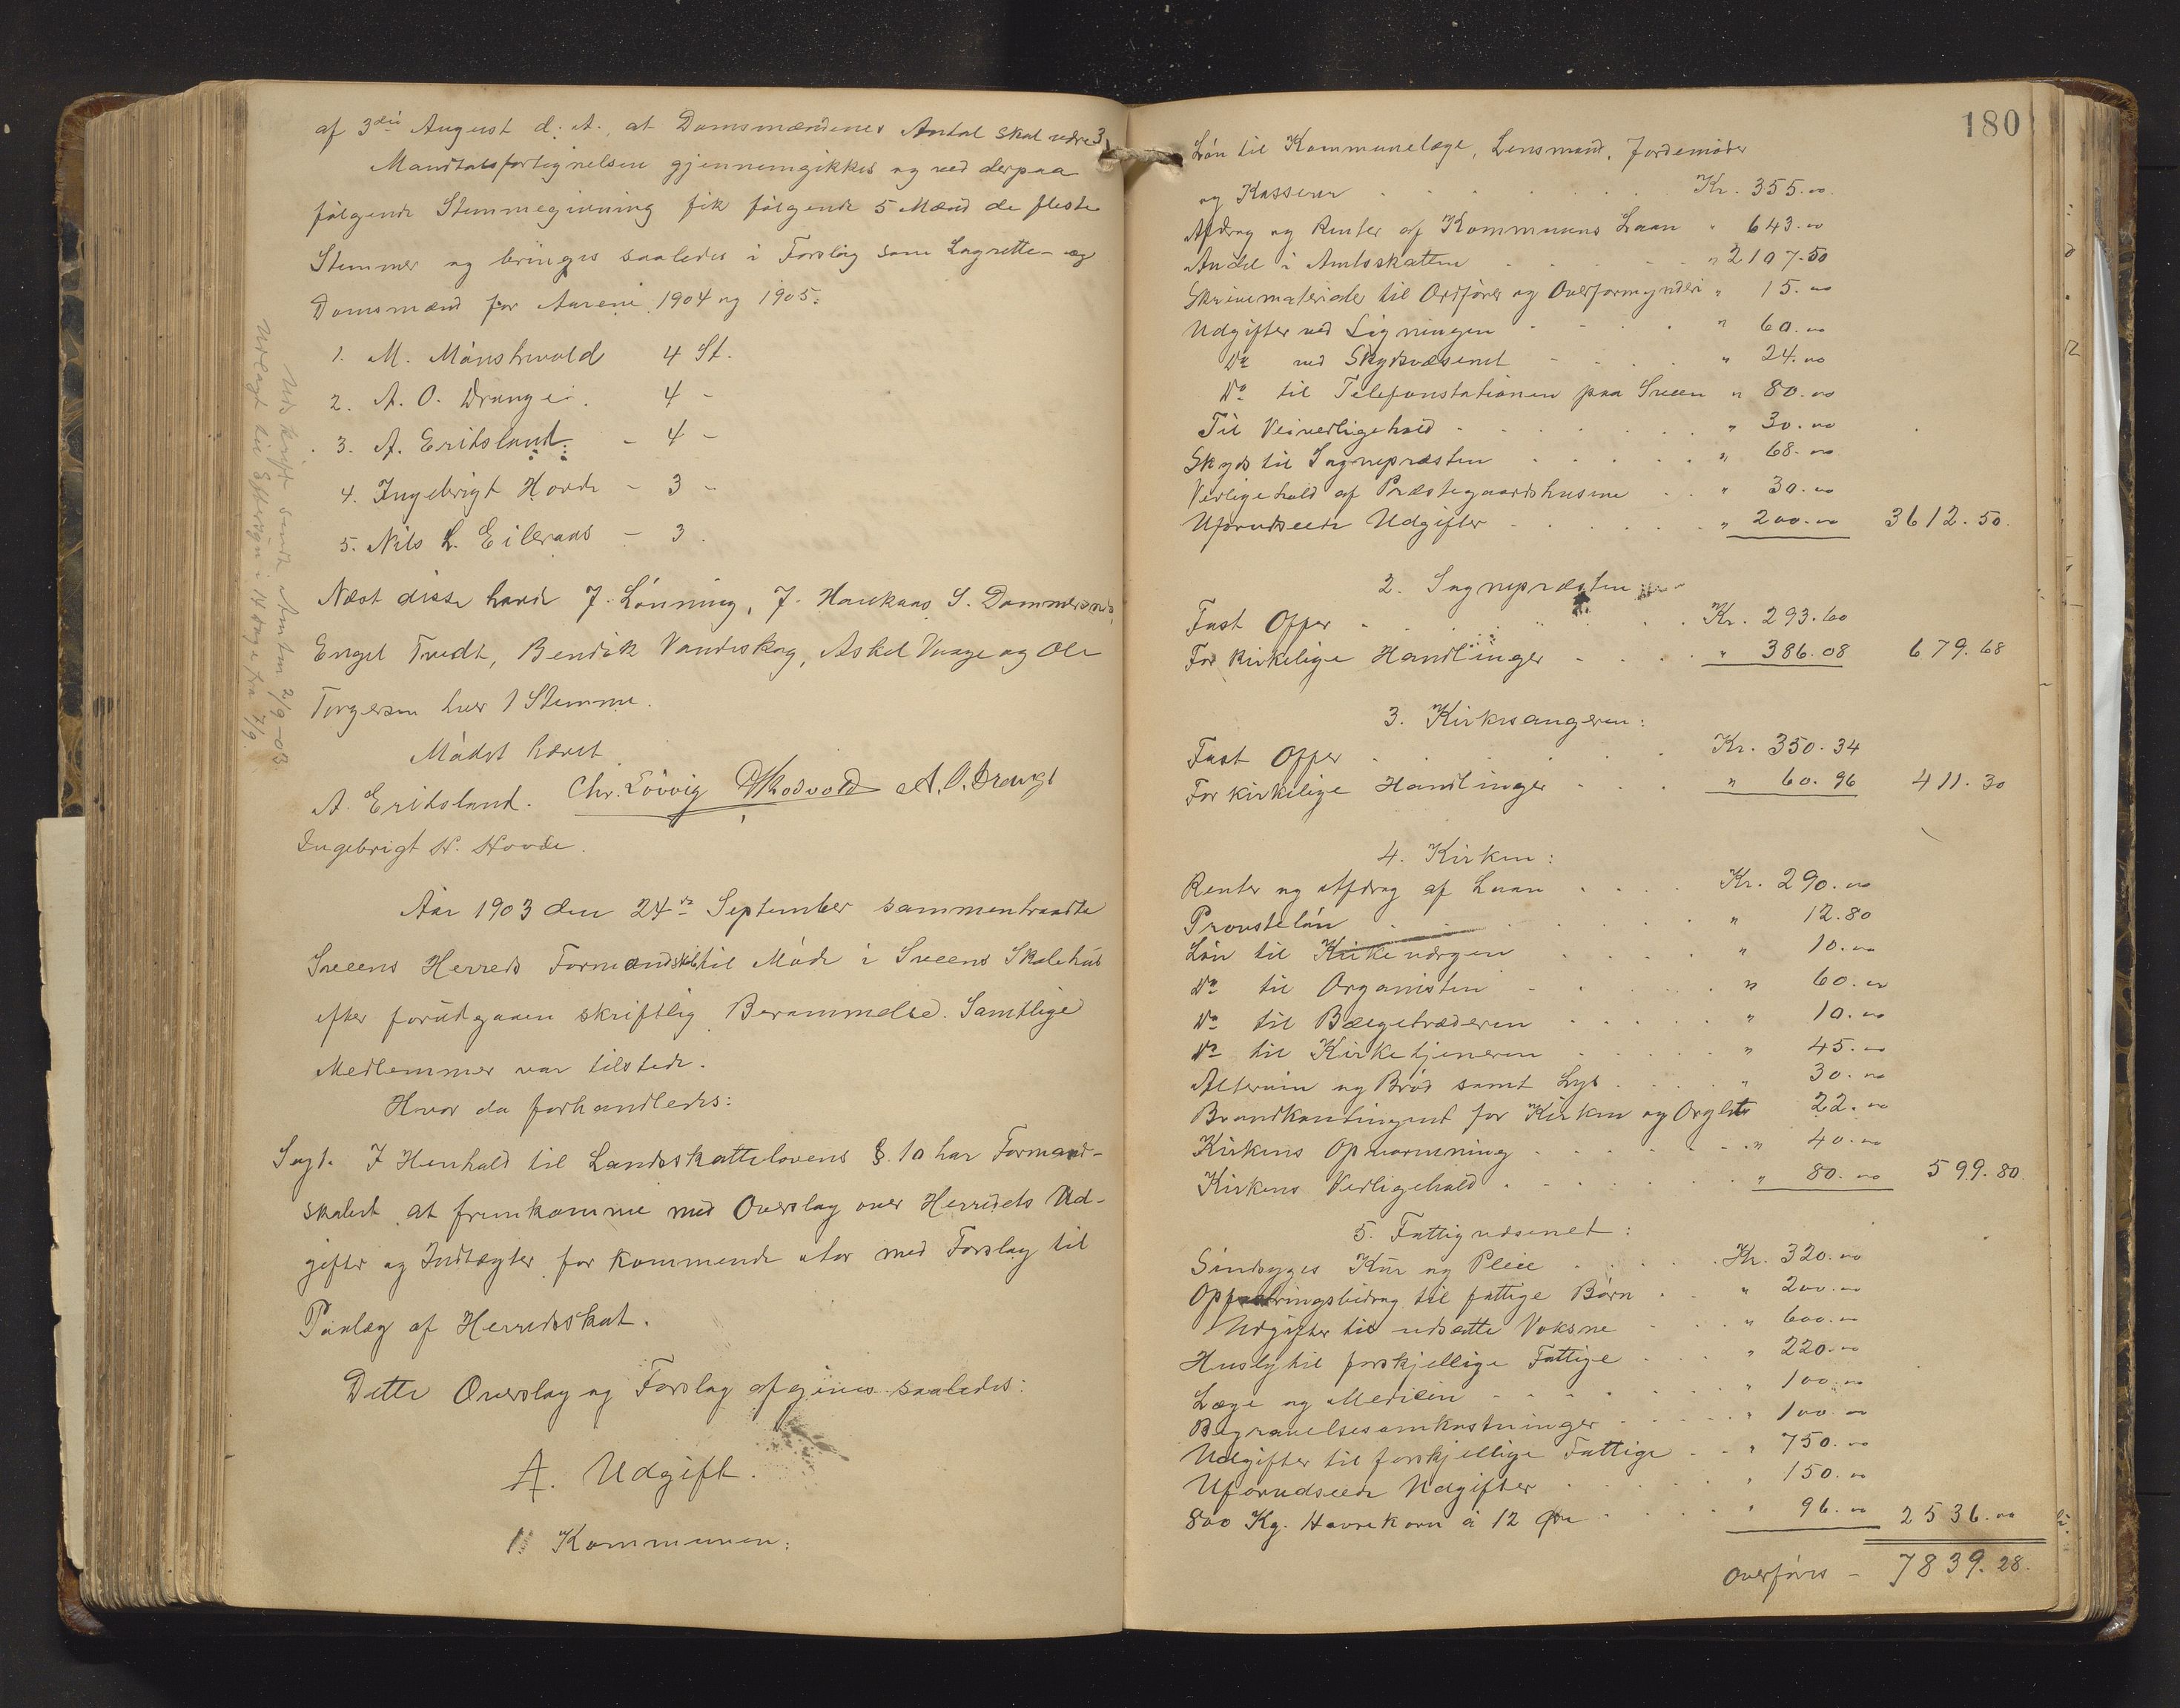 af 3die August d. A., at Domsmændenes Antal skal være 3.
Mandtalsfortegnelsen gjennemgikkes og ved derpaa
følgende Stemmegivning fik følgende 5 Mænd de fleste
Stemmer og bringes saaledes i Forslag som Lagrette- og
Domsmænd for Aarene 1904 og 1905:
1. M. Mönstrevold 4 St.
2. A. O. Drange. 4 -
3. A. Eritsland. - 4 -
4. Ingebrigt Hovde - 3 -
5. Nils L. Eileraas - 3.
Næst disse havde J. Lönning, J. Haukaas, S. Dommersnes,
Engel Tvedt, Bendik Vandeskog, Askel Vaage og Ole
Torgersen hver 1 Stemme.
Mödet hævet
A. Eritsland. Chr. Lövvig A. O. Drange
Ingebrigt H. Hovde.
Udskrift sendt Amtm 2/9-03.
Udlagt til Eftersyn i 14 Dage fra 7/9.
Aar 1903 den 24de September sammentraadte
Sveens Herreds Formandskab til Möde i Sveens Skolehus
efter forudgaaen skriftlig Berammelse. Samtlige
Medlemmer var tilstede.
Hvor da forhandledes:
Sag 1. I Henhold til Landsskattelovens § 10 har Formand-
skabet at fremkomme med Overslag over Herredets Ud-
gifter og Indtægter for kommende Aar med Forslag til
Paalæg af Herredsskat.
Dette Overslag og Forslag afgives saaledes:
A. Udgift.
1. Kommunen:
180
Lön til Kommunelæge, Lensmand, Jordemöder
og Kasserer Kr. 355.00
Afdrag og Renter af Kommunens Laan " 643.00
Andel i Amtsskatten " 2107.50
Skrivematerialer til Ordförer og Overformynderi " 15.00
Udgifter ved Ligningen " 60.00
Do ved Skydsvæsenet " 24.00
Do til Telefonstationen paa Sveen " 80.00
Til Veivedligehold " 30.00
Skyds til Sognepræsten " 68.00
Vedligehold af Præstegaardshusene " 30.00
Uforudseede Udgifter " 200.00 3612.50
2. Sognepræsten
Fast Offer Kr. 293.60
For kirkelige Handlinger " 386.08 679.68
3. Kirkesangeren:
Fast Offer Kr. 350.34
For kirkelige Handlinger " 60.96 411.30
4. Kirken:
Renter og Afdrag af Laan Kr. 290.00
Provstelön " 12.80
Lön til Kirkeværgen " 10.00
Do til Organisten " 60.00
Do til Bælgetræderen " 10.00
Do til Kirketjeneren " 45.00
Altervin og Bröd samt Lys " 30.00
Brandkontingent for Kirken og Orglet 22.00
Kirkens Opvarmning " 40.00
Kirkens Vedligehold " 80.00 599.80
5. Fattigvæsenet:
Sindsyges Kur og Pleie Kr. 320.00
Opfostringsbidrag til fattige Börn " 200.00
Udgifter til udsatte Voksne " 600.00
Husly til forskjellige Fattige " 220.00
Læge og Medicin " 100.00
Begravelsesomkostninger " 100.00
Udgifter til forskjellige Fattige " 750.00
Uforudseede Udgifter " 150.00
800 Kg. Havrekorn à 12 Öre " 96.00 2536.00
Overföres - 7839.28.